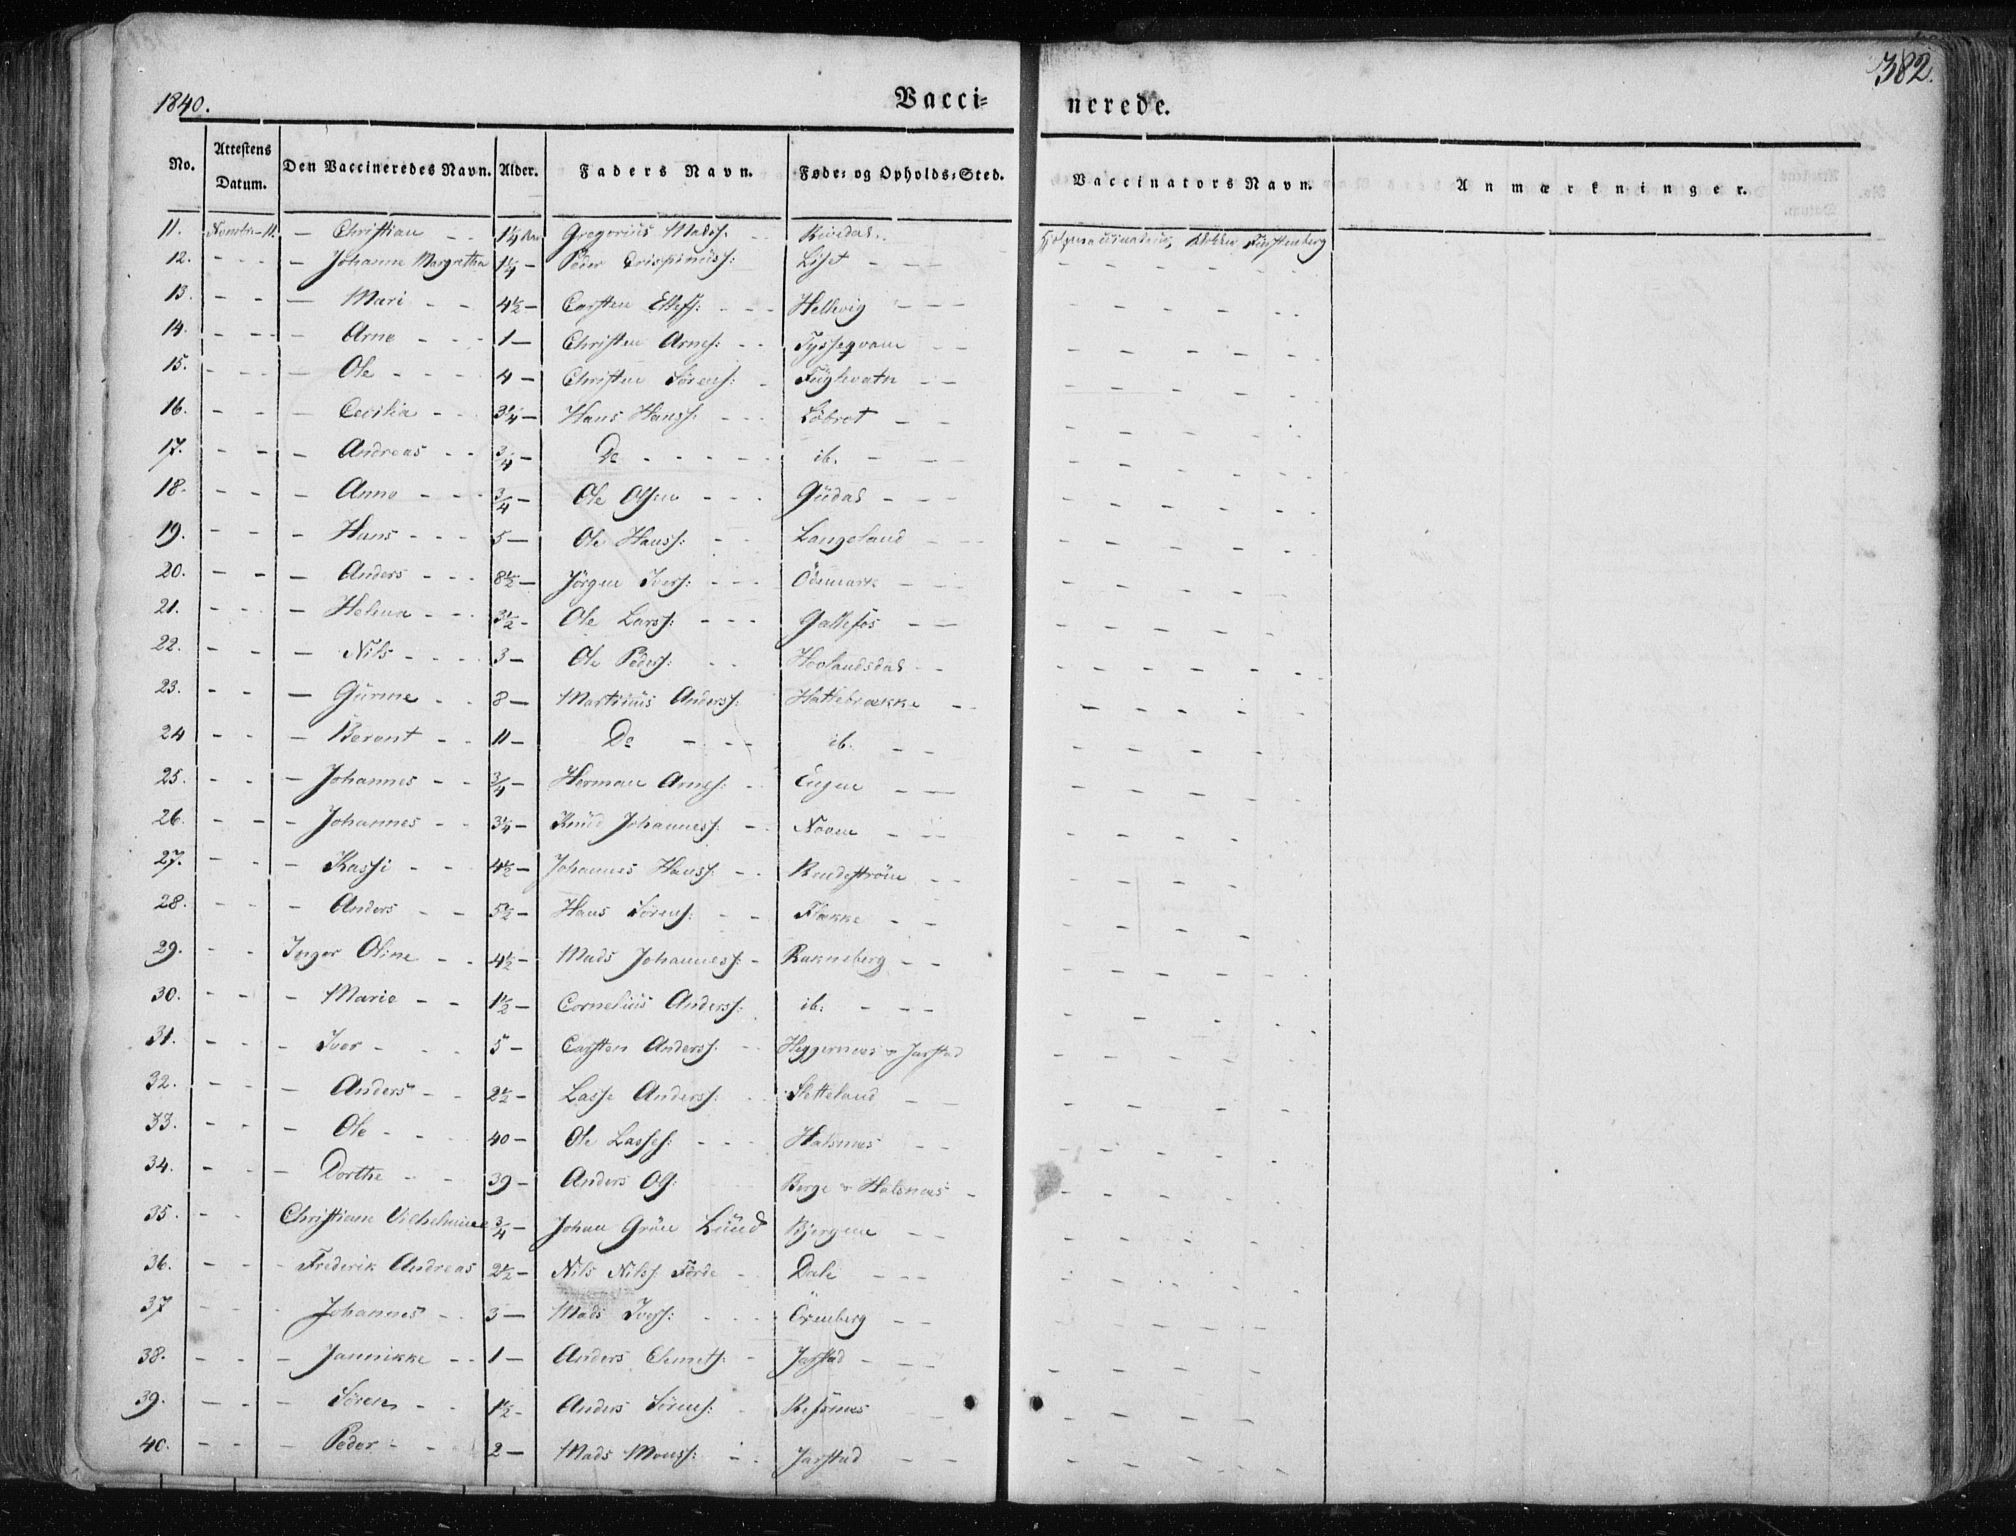 382.
1840. Vacci= nerede.
No. Attestens Datum. Den Vaccineredes Navn. Alder. Faders Navn. Føde= og Opholds=Sted. Vaccinators Navn. Anmærkninger.
11. 11. – Christian – – 1¼ Gregorius Madss: – –
12. – – – – Johanne Margrethe 1¼ – Peder Crispinuss: Liset – –
13. – – – Mari – – 4½ – Carsten Ellefs: – – – Hellevig – – –
14. – – – – Arne – – 1 – Christen Arnes: – – Tysseqvam – –
15. – – – – Ole – – – 4 – Christen Sörens: – Fuglevatn – –
16. – – – Cecilia – – 3¼ – Hans Hanss: – – Löbret – –
17. – – – Andreas – – ¾ – Do – – – – – ib. – – –
18. – – – Anne – – – ¾ – Ole Olsen – – – Güdal – – –
19. – – – Hans – – – 5 – Ole Hanss: – – Langeland – – –
20. – – – Anders – – – 8½ – Jörgen Ivers: – – – Ödemark – –
21. – – – Helena – – – 3½ – Ole Larss: – – – Gallefos – –
22. – – – Nils – – – – 3 – Ole Peders: – – Hovlandsdal – –
23. – – – Gurine – – 8 – Martinüs Anderss: Hattebrække – –
24 – – – Berent – – 11 – Do – – – – ib. – –
25. – – – Johannes – – ¾ – Herman Arnes: – Engen – – –
26. – – – Johannes – – 3¼ – Knüd Johanness: – – – –
27. – – – Kassi – – 4½ – Johannes Hanss: – – – –
28. – – – Anders – – 5½ – Hans Sörens: – – Flekke – –
29. – – Inger Oline – – 4½ – Mads Johanness: – Rakneberg – –
30. – – – Marie – – 1½ – Cornelius Anderss: ib. – – – –
31. – – – Iver – – – 5 – Carsten Anderss: – – Heggernæs & Jarstad
32. – – – Anders – – 2½ – Lasse Anderss: – – Sletteland – –
33. – – – Ole – – – 40 – Ole Lasses: – – – Halsnæs – –
34. – – – Dorthe – – 39 – Anders Ols: Berge & Halsnæs –
35. – – Christiane Vilhelmine ¾ – Johan Grön Lünd Bjergene – –
36. – – – Frederik Andreas 2½ – Nils Nilss: Förde – Dale – – –
37 – – – Johannes – – 3 – Mads Ivers: – – – – Öxenberg – –
38. – – – Jannikke – – 1 – Anders Clemets: – Jarstad – – –
39. – – – Sören – – 1½ – Anders Sörens: – Refsnæs –
40. – – – Peder – – 2 – Mads Monss: – – Jarstad – –